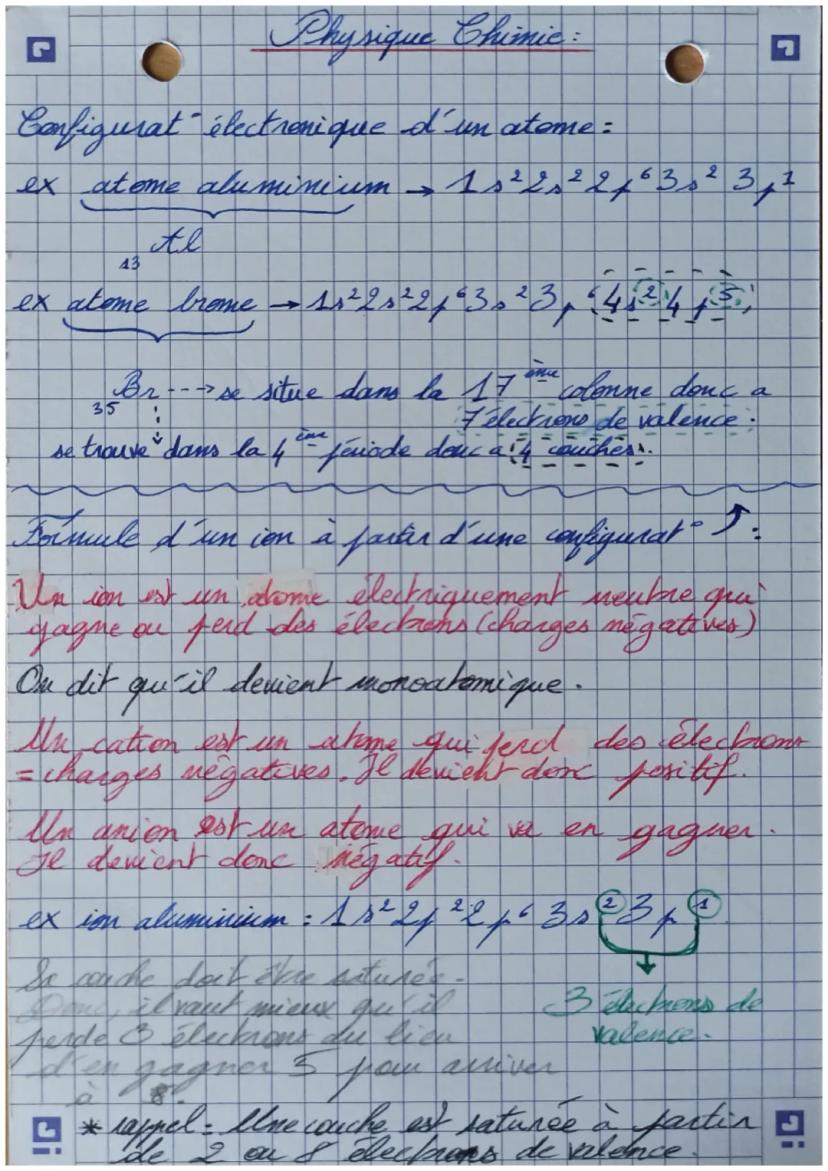 Physique Chimie:
Configurat° électronique d'un atome:
ex atome aluminium → 1s² 2s² 2p⁶ 3s² 3p¹
₁₃Al
ex atome brome → 1s² 2s² 2p⁶ 3s² 3p⁶ 4s² 4p⁵
₃₅Br ---> se situe dans la 17ème colonne donc a
7 électrons de valence.
se trouve dans la 4ème période donc a 4 couches.
Formule d'un ion à partir d'une configurat° ⤴ :
Un ion est un atome électriquement neutre qui
gagne ou perd des électrons (charges négatives)
On dit qu'il devient monoatomique.
Un cation est un atome qui perd des électrons
= charges négatives. Il devient donc positif.
Un anion est un atome qui va en gagner.
Il devient donc négatif.
ex ion aluminium : 1s² 2p² 2p⁶ 3s² 3p¹
Sa couche doit être saturée.
Donc, il vaut mieux qu'il
perde 3 électrons au lieu
d'en gagner 5 pour arriver
à 8.
3 électrons de
valence.
* rappel = Une couche est saturée à partir
de 2 ou 8 électrons de valence.